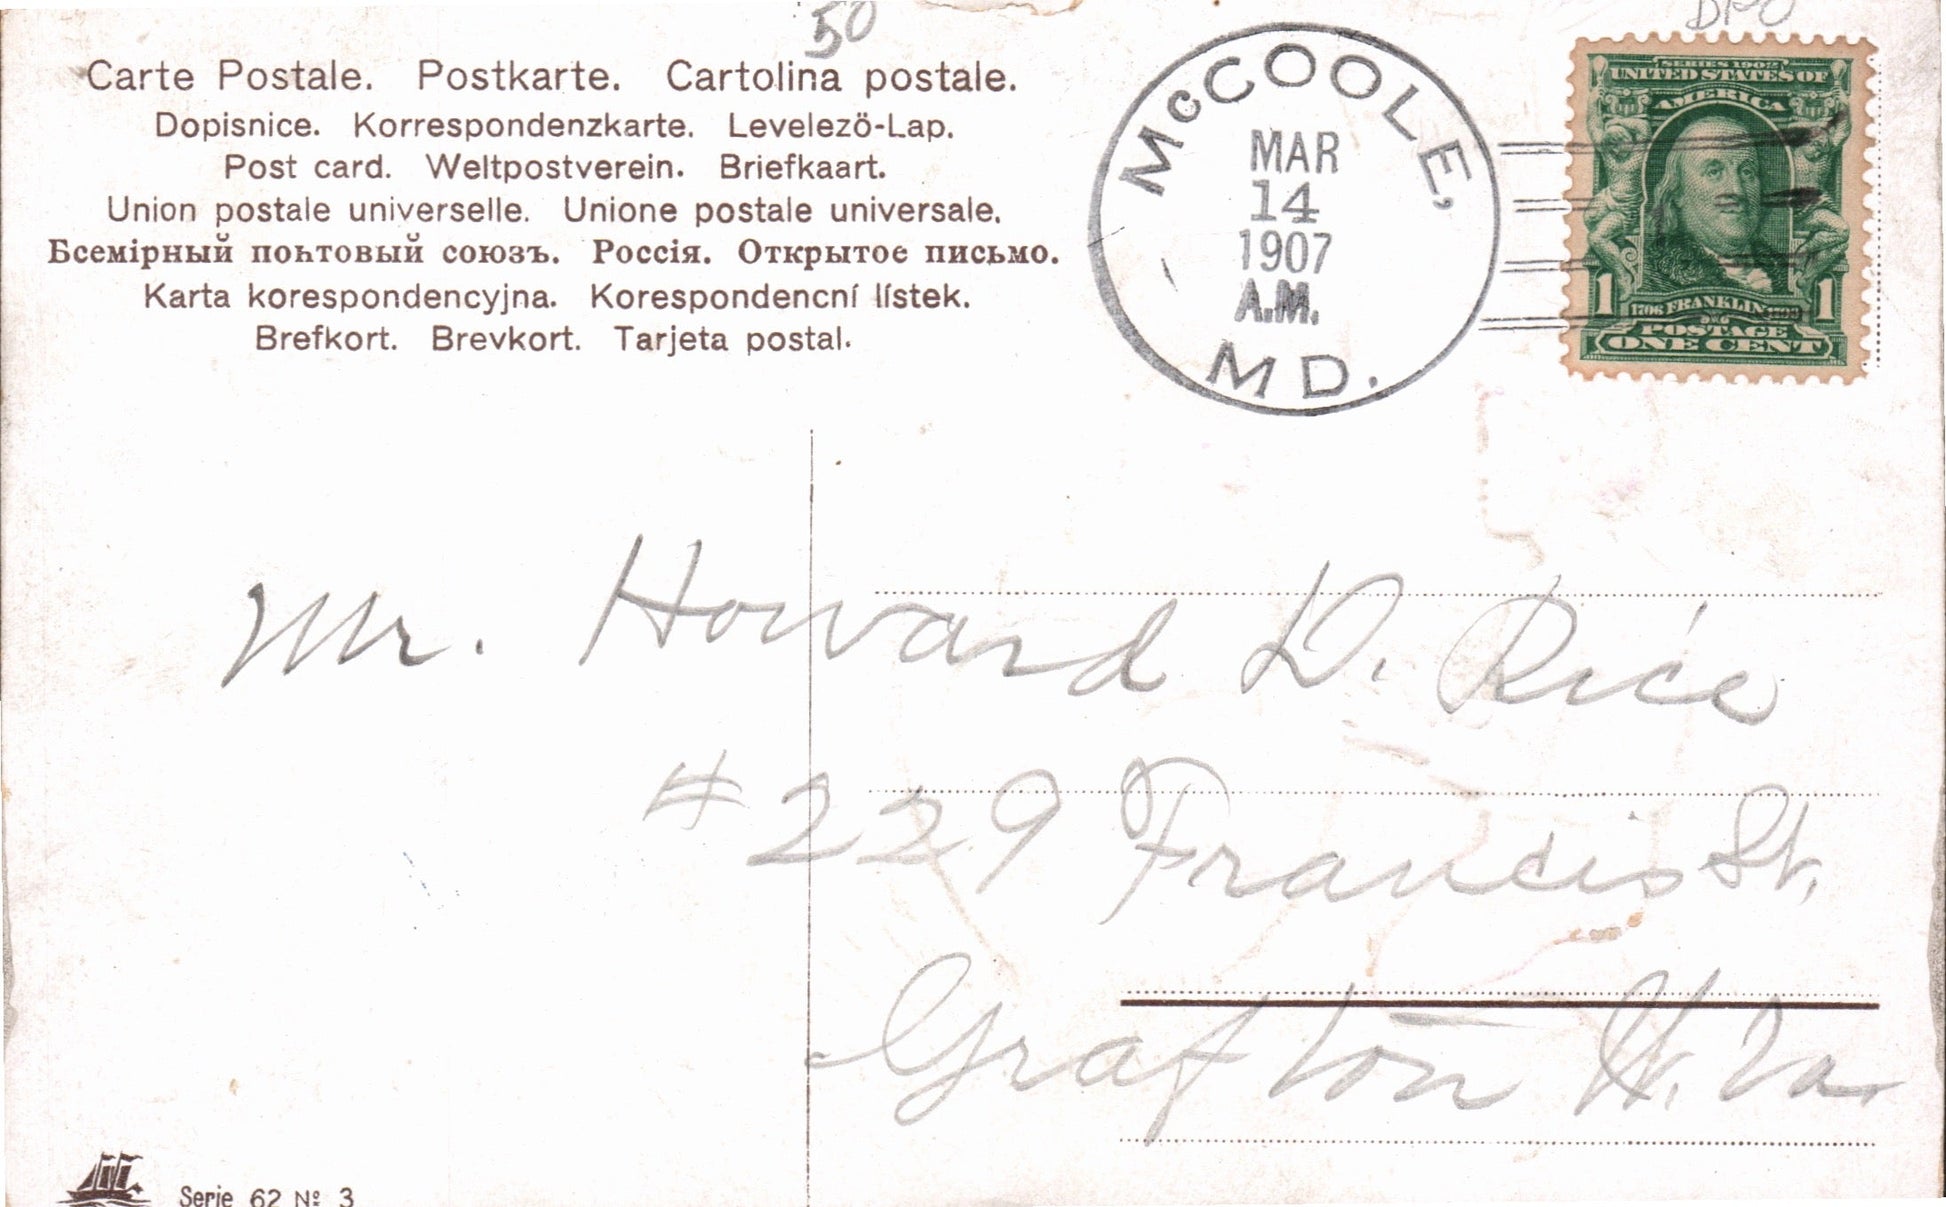 50
DPO
Carte Postale. Postkarte. Cartolina postale.
Dopisnice. Korrespondenzkarte. Levelezö-Lap.
Post card. Weltpostverein. Briefkaart.
Union postale universelle. Unione postale universale.
Бсемірный поћтовый союзъ. Россія. Открытое письмо.
Karta korespondencyjna. Korespondencní lístek.
Brefkort. Brevkort. Tarjeta postal.
McCOOLE,
MAR
14
1907
A.M.
MD.
SERIES 1902
UNITED STATES OF
AMERICA
1 1706 FRANKLIN 1790 1
POSTAGE
ONE CENT
Mr. Howard D. Rice
#229 Francis St.
Grafton W. Va.
Serie 62 № 3